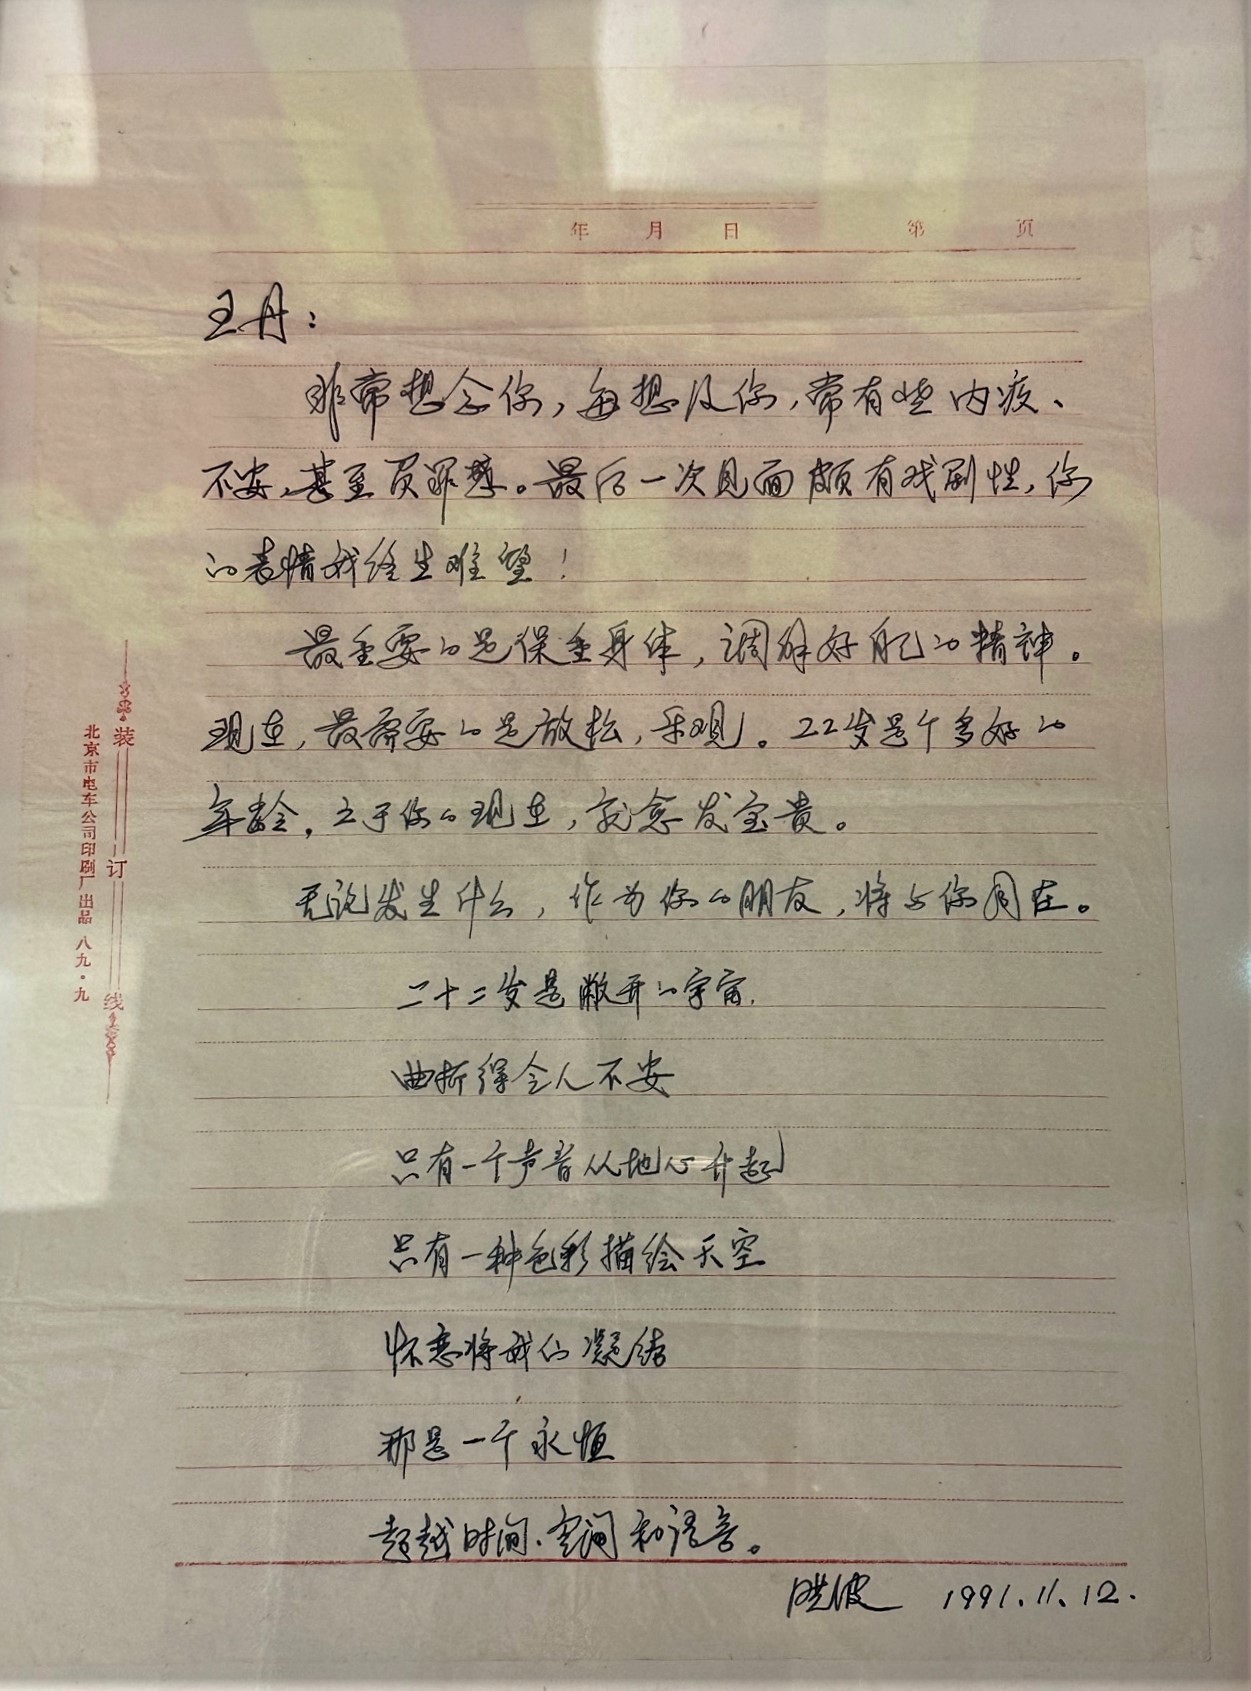 年 月 日 第 页
王丹：
非常想念你，每想及你，常有些内疚、
不安，甚至负罪感。最后一次见面颇有戏剧性，你
的表情我终生难望！
最重要的是保重身体，调解好自己的精神。
现在，最需要的是放松，乐观。22岁是个多好的
年龄，之于你的现在，就愈发宝贵。
无论发生什么，作为你的朋友，将与你同在。
二十二岁是敞开的宇宙，
曲折得令人不安
只有一个声音从地心升起
只有一种色彩描绘天空
怀恋将我们凝结
那是一个永恒
超越时间、空间和语言。
波 1991.11.12.
装订线
北京市电车公司印刷厂出品 八九·九